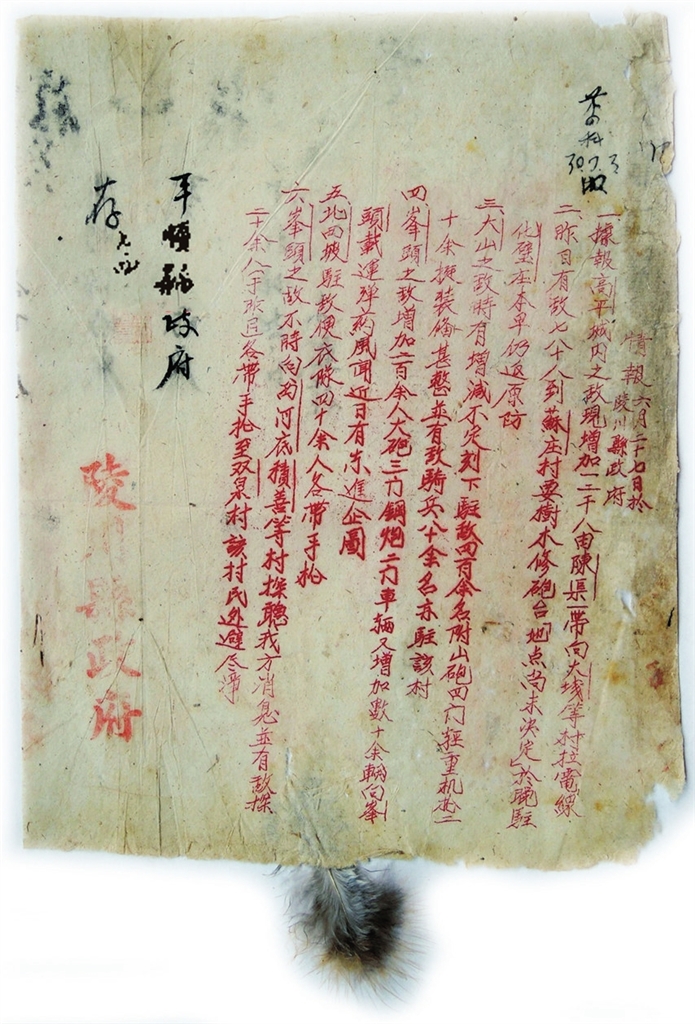 情報 六月二十七日於
陵川縣政府
一據報高平城内之敌現增加一二千人由陳渠一帶向大堎等村拉電線
二昨日有敌七八十人到蘇庄村要樹木修砲台（地点尚未决定）於晚駐
化壁庄本早仍返原防
三大山之敌時有增減不定刻下駐敌四百余名附山砲四门輕重机共二
十余挺装俻甚整並有敌騎兵八十余名亦駐該村
四峯頭之敌增加二百余人大砲三门鋼炮二门車輛又增加數十余輌向峯
頭載運弹药風聞近日有东進企圖
五北四坡駐敌便衣隊四十余人各帶手枪
六峯頭之敌不時向丙河底積善等村探聽我方消息並有敌探
二十余人于昨日各帶手枪至双泉村該村民逃避尽净
平順縣政府
存 七.四
陵川縣政府